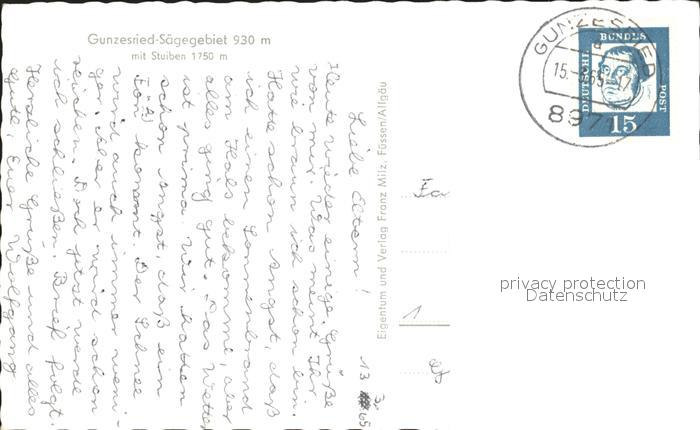 Gunzesried-Sägegebiet 930 m
mit Stuiben 1750 m
13. 3. 65
Liebe Eltern!
Heute wieder einige Grüße
von mir. Was meint Ihr
wie braun ich schon bin.
Hatte schon Angst, daß
ich einen Sonnenbrand
am Hals bekomme, aber
alles ging gut. Das Wetter
ist prima. Wir hatten
schon Angst, daß ein
Fön kommt. Der Schnee
wird auch immer weni-
ger. Aber er wird schon
reichen. Doch jetzt werde
ich schließen. Brief folgt.
Herzliche Grüße und alles
Gute, Euer Wolfgang
Eigentum und Verlag Franz Milz, Füssen/Allgäu
Fa
1
GUNZESRIED
15.
65-17
8971
DEUTSCHE
BUNDES
POST
15
privacy protection
Datenschutz